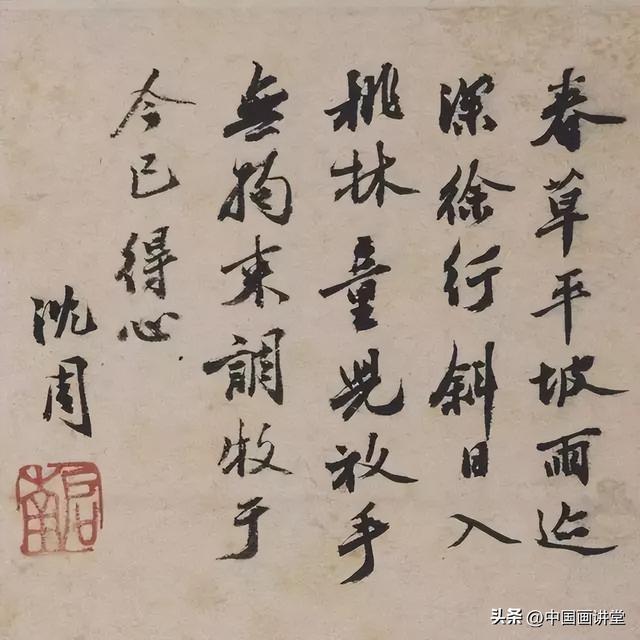 春草平坡雨迹
深徐行斜日入
桃林童兒放手
無拘束調牧于
今已得心
沈周
启南
头条 @中国画讲堂